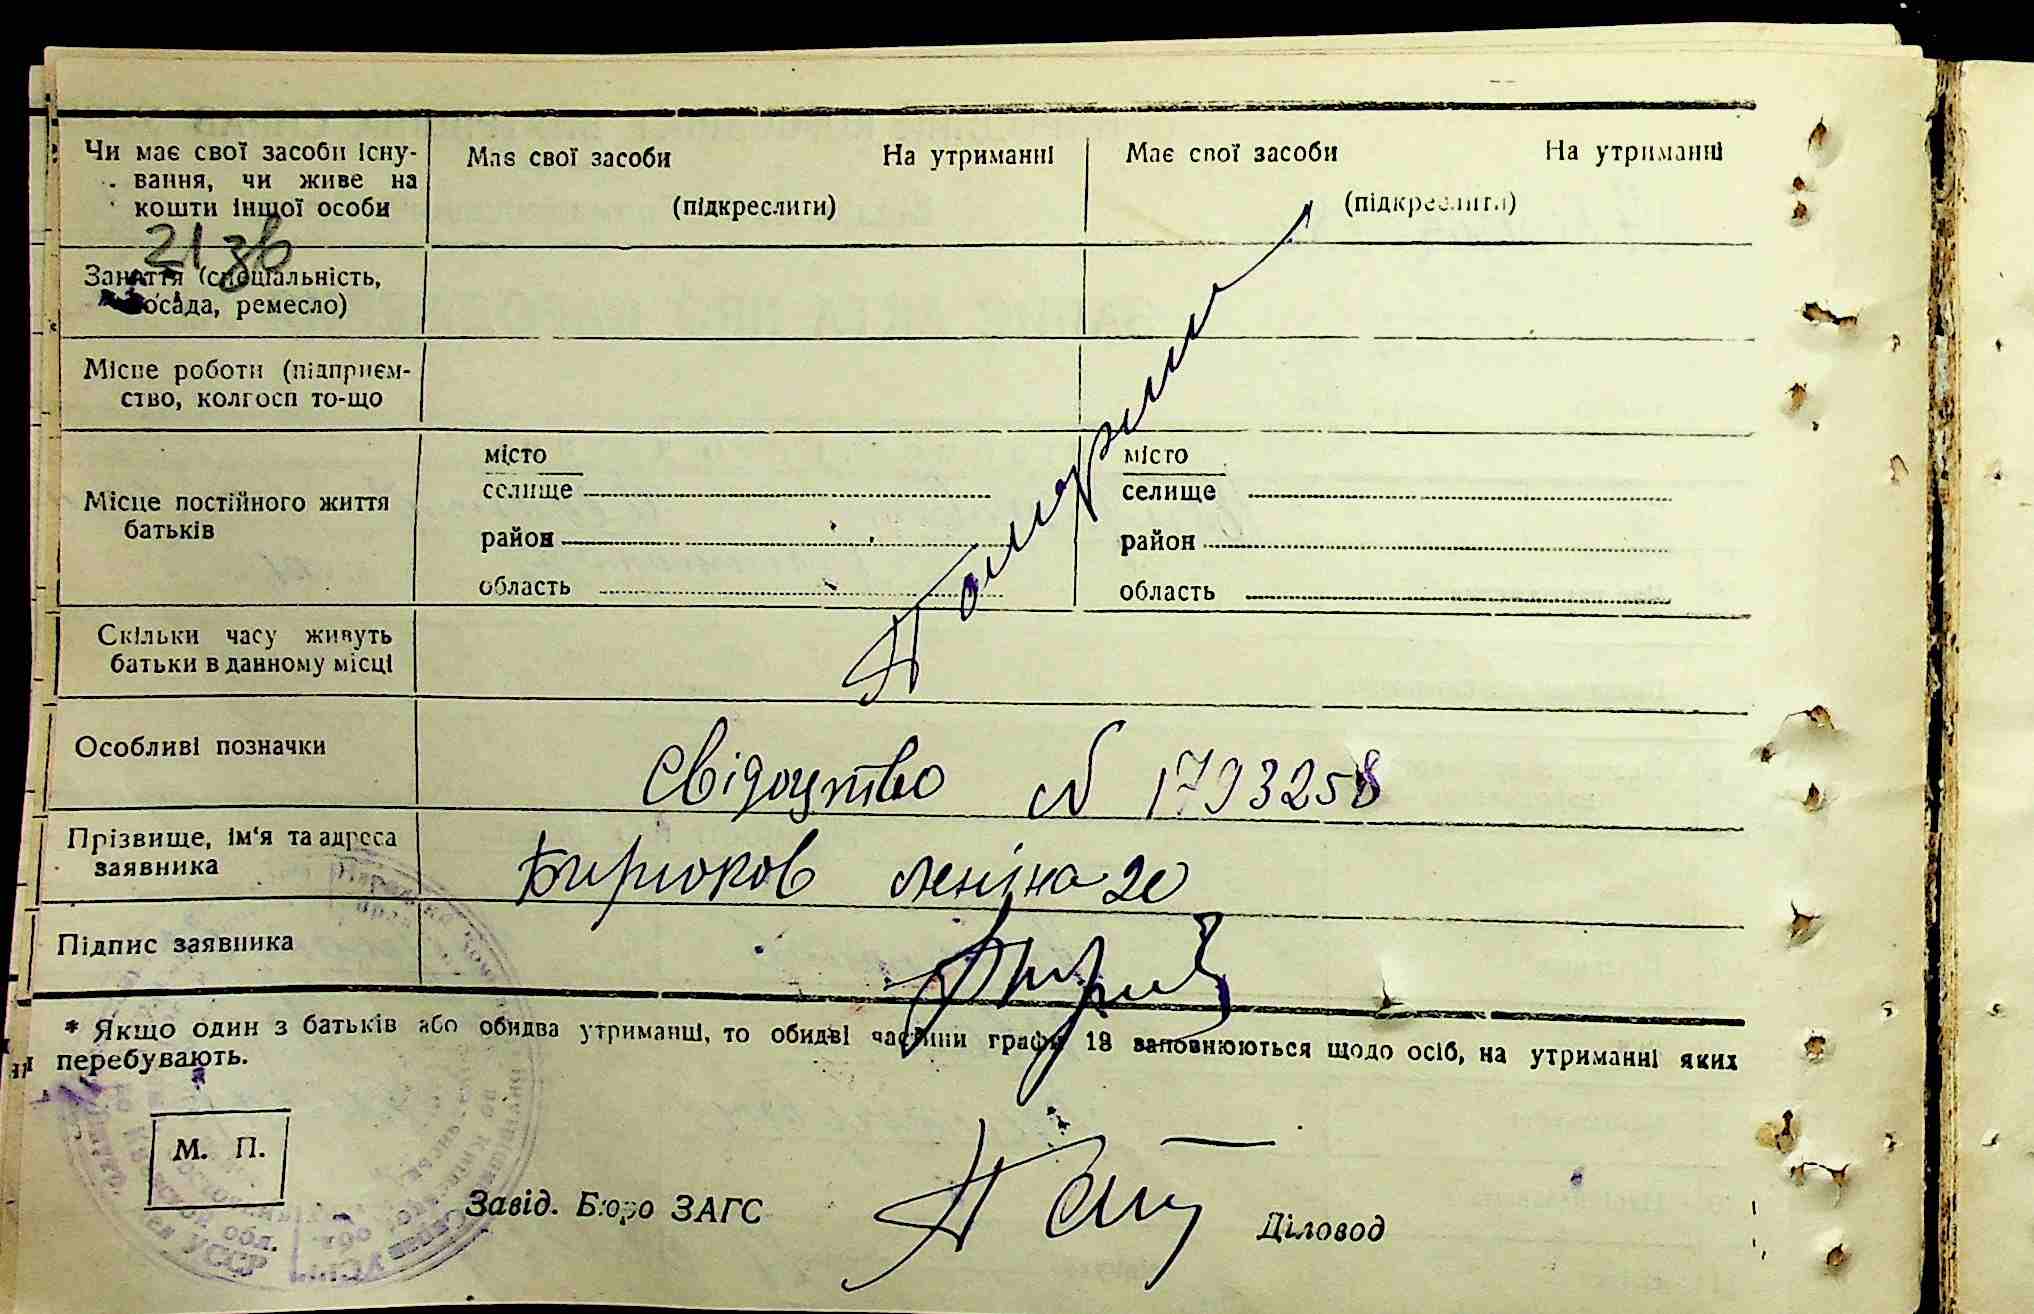 Чи має свої засоби існу-
вання, чи живе на
кошти іншої особи
Має свої засоби На утриманні
(підкреслити)
Має свої засоби На утриманні
(підкреслити)
21 зв
Заняття (спеціальність,
посада, ремесло)
Місце роботи (підприєм-
ство, колгосп то-що
Місце постійного життя
батьків
місто
селище
район
область
місто
селище
район
область
Скільки часу живуть
батьки в данному місці
Особливі позначки
Свідоцтво N 1793258
Прізвище, ім'я та адреса
заявника
Бирюков Леніна 20
Підпис заявника
* Якщо один з батьків або обидва утриманці, то обидві частини графи 18 заповнюються щодо осіб, на утриманні яких
перебувають.
М. П.
Завід. Бюро ЗАГС
Діловод